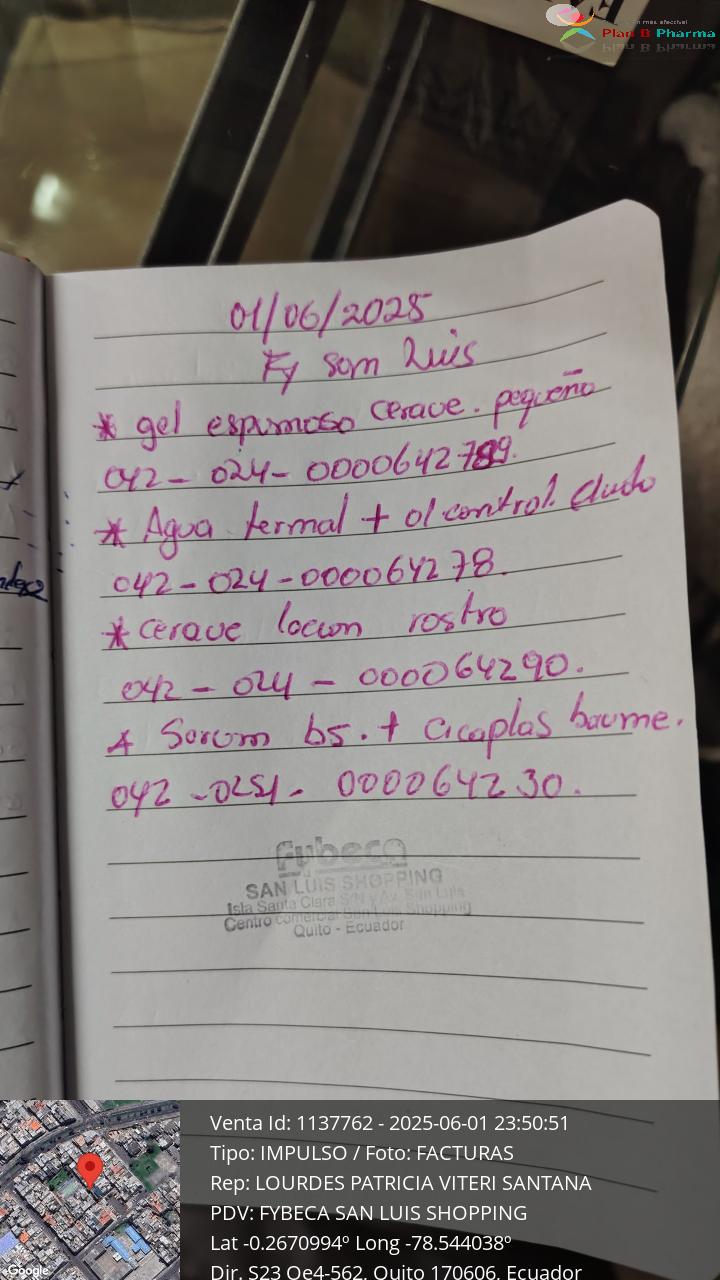 Plan B Pharma
01/06/2025
Fy San Luis
* gel espumoso cerave. pequeño
042 - 024 - 0000642789.
* Agua termal + ol control.
042 - 024 - 000064278.
* Cerave locion rostro
042 - 024 - 000064290.
* Serum b5. + Cicaplas baume.
042 - 000064230.
Fybeca
SAN LUIS SHOPPING
Isla Santa Clara S/N y Av. San Luis
Centro Comercial San Luis Shopping
Quito - Ecuador
Venta Id: 1137762 - 2025-06-01 23:50:51
Tipo: IMPULSO / Foto: FACTURAS
Rep: LOURDES PATRICIA VITERI SANTANA
PDV: FYBECA SAN LUIS SHOPPING
Lat -0.2670994º Long -78.544038º
Dir. S23 Oe4-562, Quito 170606, Ecuador
Google